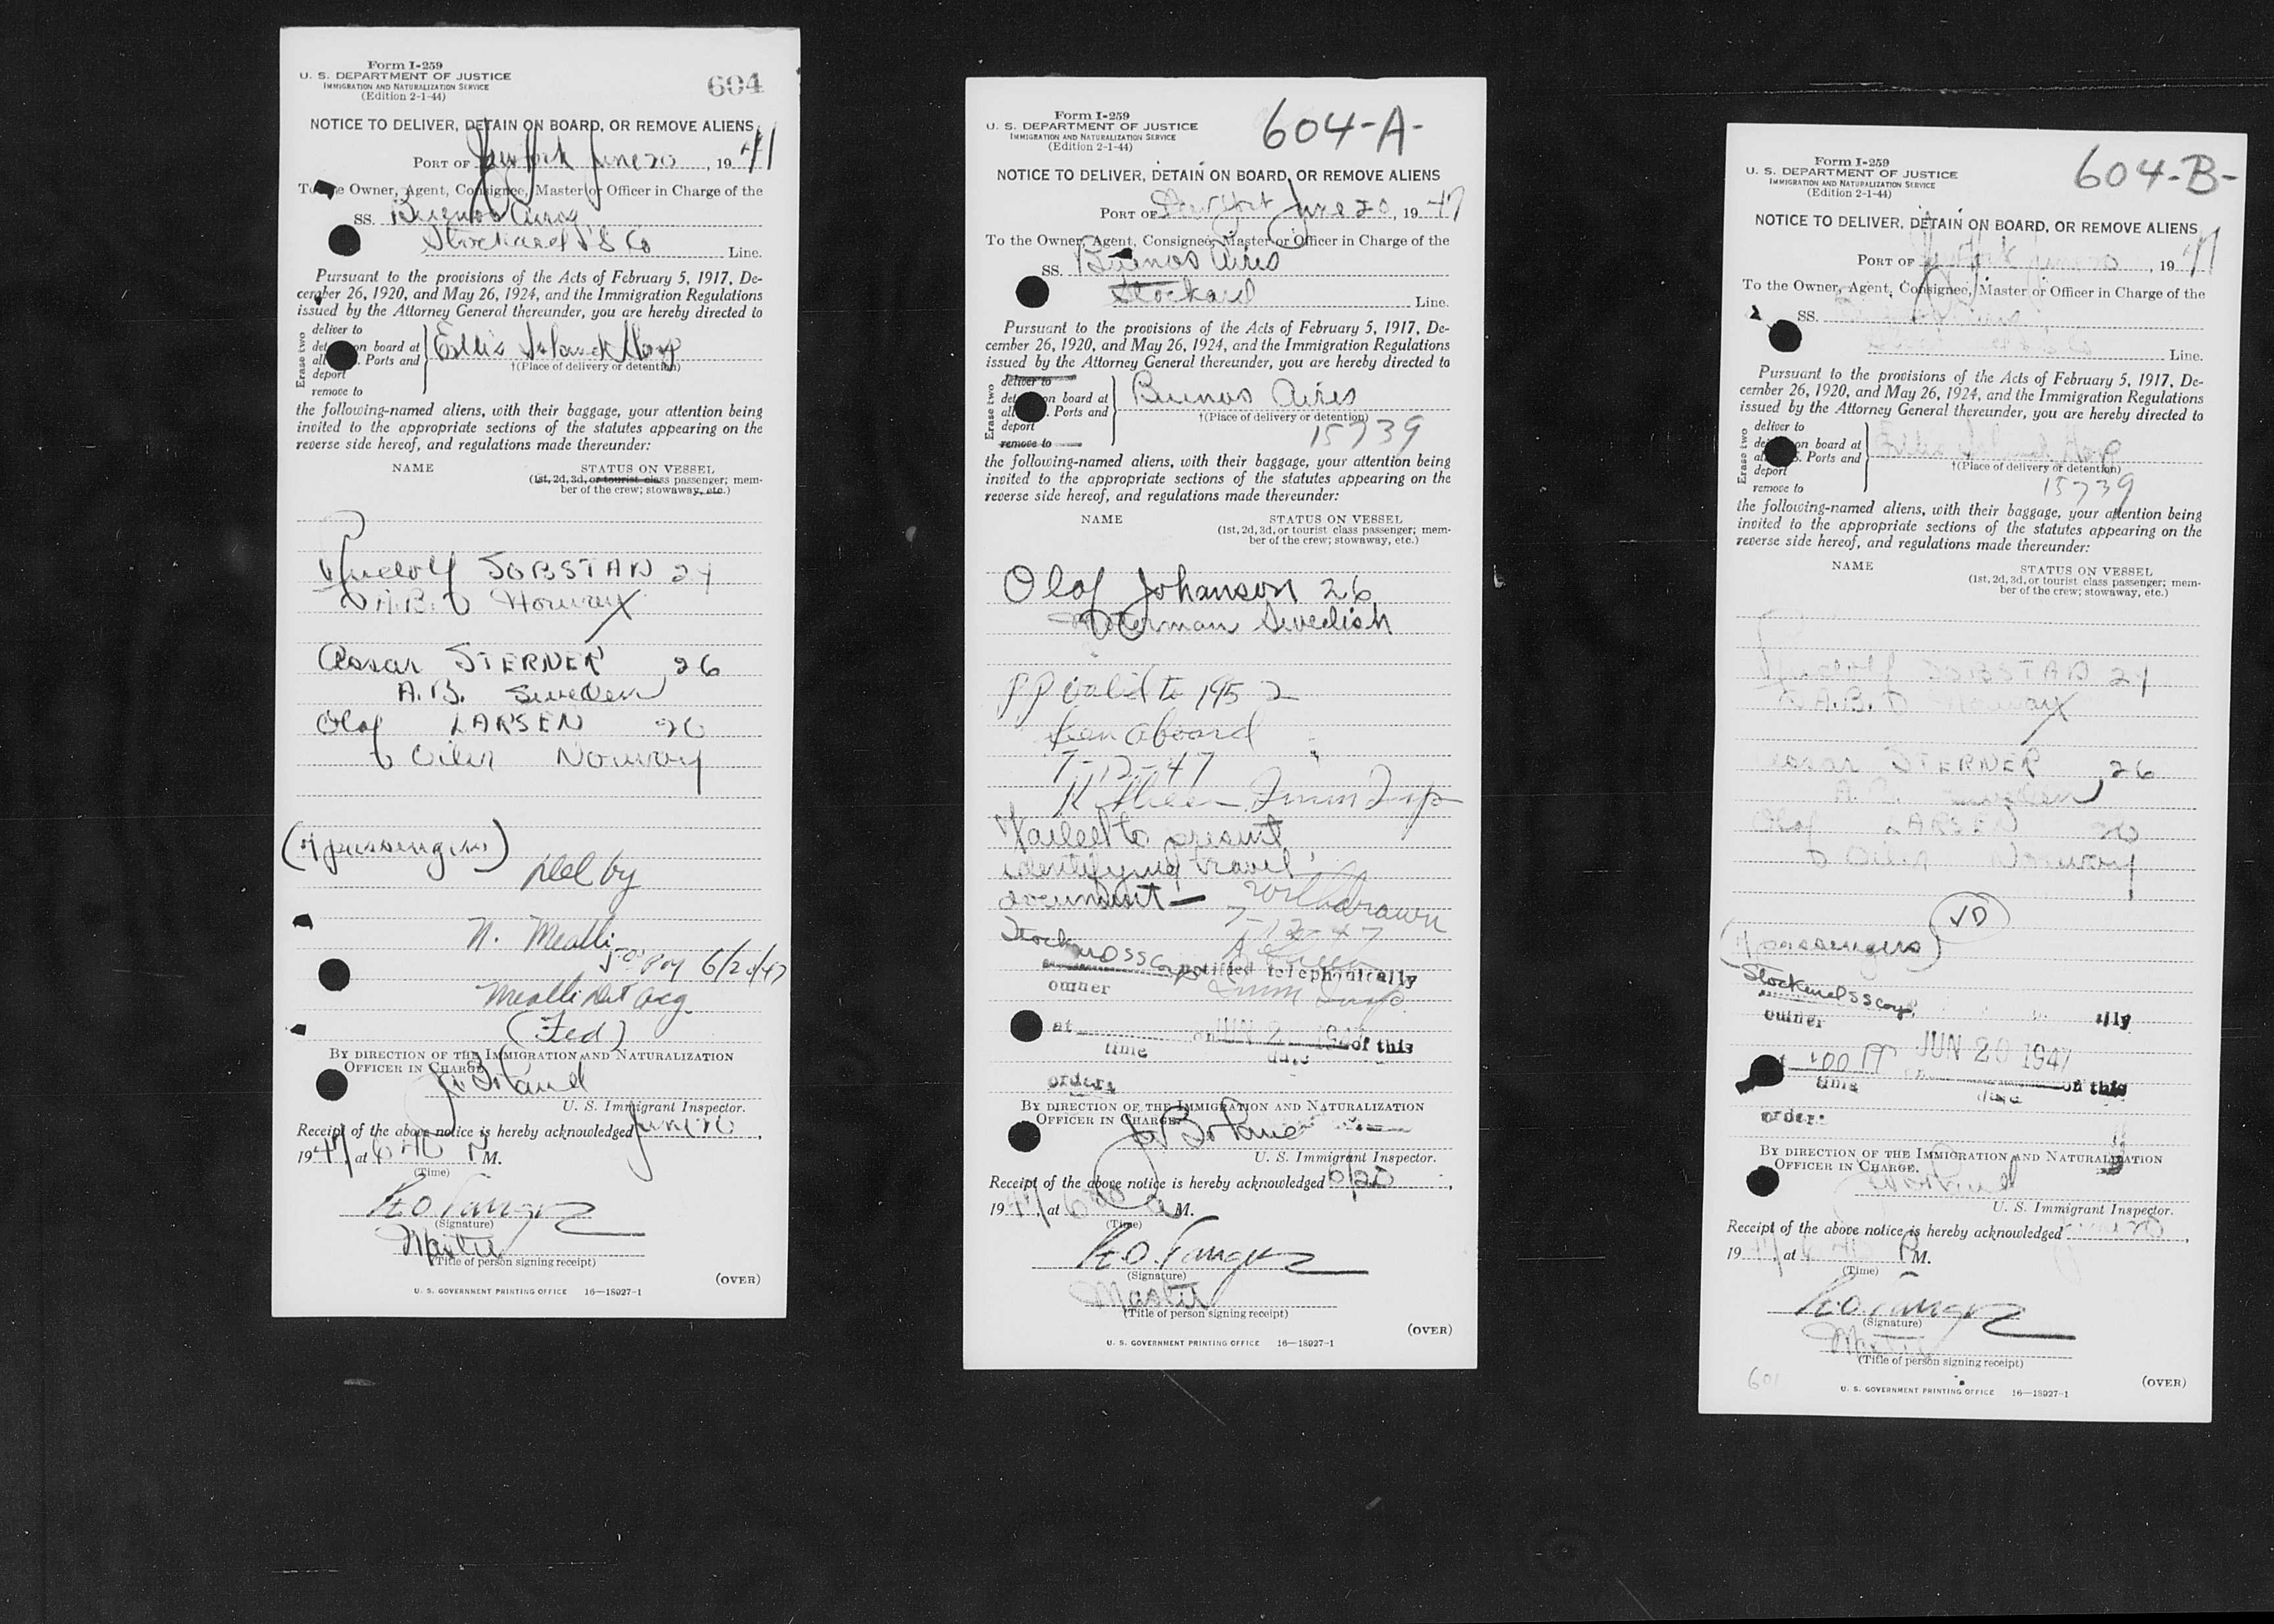 Form I-259
U. S. DEPARTMENT OF JUSTICE
IMMIGRATION AND NATURALIZATION SERVICE
(Edition 2-1-44)
604
NOTICE TO DELIVER, DETAIN ON BOARD, OR REMOVE ALIENS
PORT OF New York June 20, 19 47
To the Owner, Agent, Consignee, Master or Officer in Charge of the
SS. Buenos Aires
Stockard SS Co Line.
Pursuant to the provisions of the Acts of February 5, 1917, De-
cember 26, 1920, and May 26, 1924, and the Immigration Regulations
issued by the Attorney General thereunder, you are hereby directed to
Erase two
deliver to
on board at
Ports and
deport
remove to
Ellis Island Hosp
†(Place of delivery or detention)
the following-named aliens, with their baggage, your attention being
invited to the appropriate sections of the statutes appearing on the
reverse side hereof, and regulations made thereunder:
NAME STATUS ON VESSEL
(1st, 2d, 3d, or tourist class passenger; mem-
ber of the crew; stowaway, etc.)
Rudolf JOBSTAD 24
A.B. Norway
Assar STERNER 26
A.B. Sweden
Olaf LARSEN 20
Oiler Norway
(passengers)
Del by
N. Mealli
6/20/47
Mealli Det
(Fed)
BY DIRECTION OF THE IMMIGRATION AND NATURALIZATION
OFFICER IN CHARGE
U. S. Immigrant Inspector.
Receipt of the above notice is hereby acknowledged June 20,
19 47, at 6 40 P M.
(Time)
(Signature)
Master
(Title of person signing receipt)
(OVER)
U. S. GOVERNMENT PRINTING OFFICE 16—18027-1
Form I-259
U. S. DEPARTMENT OF JUSTICE
IMMIGRATION AND NATURALIZATION SERVICE
(Edition 2-1-44)
604-A-
NOTICE TO DELIVER, DETAIN ON BOARD, OR REMOVE ALIENS
PORT OF New York June 20, 19 47
To the Owner, Agent, Consignee, Master or Officer in Charge of the
SS. Buenos Aires
Stockard Line.
Pursuant to the provisions of the Acts of February 5, 1917, De-
cember 26, 1920, and May 26, 1924, and the Immigration Regulations
issued by the Attorney General thereunder, you are hereby directed to
Erase two
deliver to
on board at
Ports and
deport
remove to
Buenos Aires
†(Place of delivery or detention)
15739
the following-named aliens, with their baggage, your attention being
invited to the appropriate sections of the statutes appearing on the
reverse side hereof, and regulations made thereunder:
NAME STATUS ON VESSEL
(1st, 2d, 3d, or tourist class passenger; mem-
ber of the crew; stowaway, etc.)
Olaf Johanson 26
Motorman Swedish
PP valid to 1952
Seen aboard
7-12-47
Imm Insp
Failed to present
identifying travel
document—
Withdrawn
7-12-47
Imm Insp.
Stockard SS Corp notified telephonically
owner
at on JUN 20 1947 of this
time date
order:
BY DIRECTION OF THE IMMIGRATION AND NATURALIZATION
OFFICER IN CHARGE.
U. S. Immigrant Inspector.
Receipt of the above notice is hereby acknowledged 6/20,
19 47, at M.
(Time)
(Signature)
Master
(Title of person signing receipt)
(OVER)
U. S. GOVERNMENT PRINTING OFFICE 16—18027-1
Form I-259
U. S. DEPARTMENT OF JUSTICE
IMMIGRATION AND NATURALIZATION SERVICE
(Edition 2-1-44)
604-B-
NOTICE TO DELIVER, DETAIN ON BOARD, OR REMOVE ALIENS
PORT OF New York June 20, 19 47
To the Owner, Agent, Consignee, Master or Officer in Charge of the
SS.
Line.
Pursuant to the provisions of the Acts of February 5, 1917, De-
cember 26, 1920, and May 26, 1924, and the Immigration Regulations
issued by the Attorney General thereunder, you are hereby directed to
Erase two
deliver to
on board at
Ports and
deport
remove to
Ellis Island Hosp
†(Place of delivery or detention)
15739
the following-named aliens, with their baggage, your attention being
invited to the appropriate sections of the statutes appearing on the
reverse side hereof, and regulations made thereunder:
NAME STATUS ON VESSEL
(1st, 2d, 3d, or tourist class passenger; mem-
ber of the crew; stowaway, etc.)
Rudolf JOBSTAD 24
A.B. Norway
Assar STERNER 26
A.B. Sweden
Olaf LARSEN 20
Oiler Norway
VD
(passengers)
Stockard SS Corp.
owner
JUN 20 1947
time date on this
order:
BY DIRECTION OF THE IMMIGRATION AND NATURALIZATION
OFFICER IN CHARGE.
U. S. Immigrant Inspector.
Receipt of the above notice is hereby acknowledged June 20,
19 47, at P M.
(Time)
(Signature)
Master
(Title of person signing receipt)
(OVER)
U. S. GOVERNMENT PRINTING OFFICE 16—18027-1